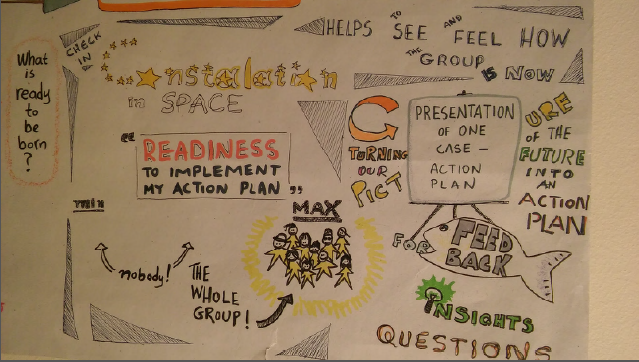 What
is
ready
to
be
born?
CHECK
IN
Constalation
in SPACE
HELPS TO SEE AND FEEL HOW
THE GROUP IS NOW
"READINESS
TO IMPLEMENT
MY ACTION PLAN"
MAX
nobody!
THE
WHOLE
GROUP!
TURNING
OUR
PICT
URE
OF THE
FUTURE
INTO
AN
ACTION
PLAN
PRESENTATION
OF ONE
CASE –
ACTION
PLAN
FOR
FEED
BACK
INSIGHTS
QUESTIONS